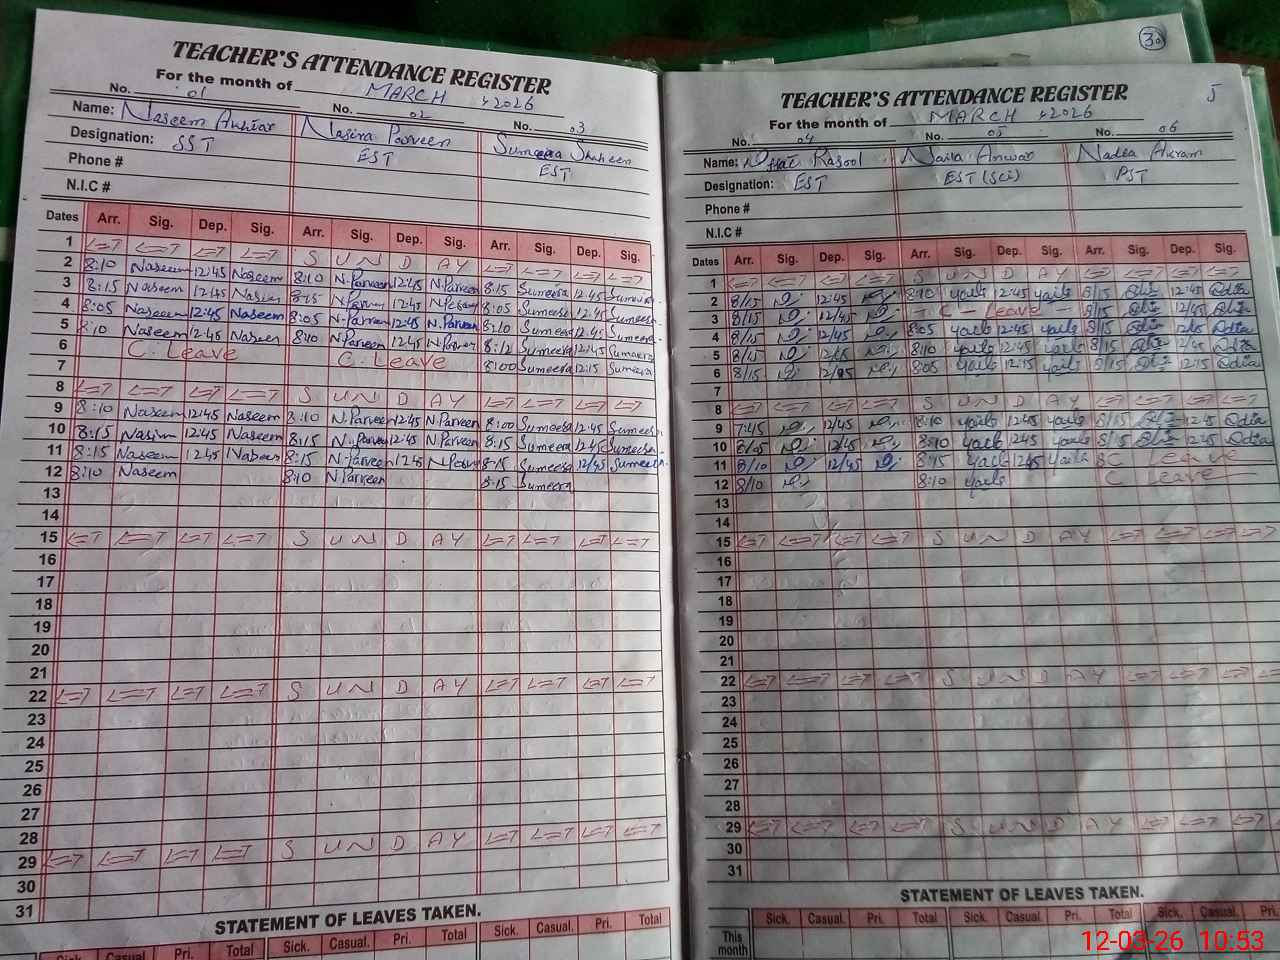 TEACHER'S ATTENDANCE REGISTER
For the month of MARCH, 2026
No. 01 No. 02 No. 03
Name: Naseem Akhtar Nasira Parveen Sumeera Shaheen
Designation: SST EST EST
Phone #
N.I.C #
Dates Arr. Sig. Dep. Sig. Arr. Sig. Dep. Sig. Arr. Sig. Dep. Sig.
1 S U N D A Y
2 8:10 Naseem 12:45 Naseem 8:10 N.Parveen 12:45 N.Parveen 8:15 Sumeera 12:45 Sumeera
3 8:15 Naseem 12:45 Naseem 8:15 N.Parveen 12:45 8:05 Sumeera 12:45 Sumeera
4 8:05 Naseem 12:45 Naseem 8:05 N.Parveen 12:45 N.Parveen 8:10 Sumeera 12:45
5 8:10 Naseem 12:45 Naseem 8:10 N.Parveen 12:45 N.Parveen 8:12 Sumeera 12:45 Sumeera
6 C. Leave C. Leave 8:00 Sumeera 12:15 Sumeera
7
8 S U N D A Y
9 8:10 Naseem 12:45 Naseem 8:10 N.Parveen 12:45 N.Parveen 8:00 Sumeera 12:45 Sumeera
10 8:15 Nasim 12:45 Naseem 8:15 N.Parveen 12:45 N.Parveen 8:15 Sumeera 12:45 Sumeera
11 8:15 Naseem 12:45 Naseem 8:15 N.Parveen 12:45 N.Parveen 8:15 Sumeera 12/45 Sumeera
12 8:10 Naseem 8:10 N.Parveen 8:15 Sumeera
13
14
15 S U N D A Y
16
17
18
19
20
21
22 S U N D A Y
23
24
25
26
27
28
29 S U N D A Y
30
31
STATEMENT OF LEAVES TAKEN.
Sick. Casual. Pri. Total Sick. Casual. Pri. Total Sick. Casual. Pri. Total
30
5
TEACHER'S ATTENDANCE REGISTER
For the month of MARCH, 2026
No. 04 No. 05 No. 06
Name: Rasool Naila Anwar Nadia Akram
Designation: EST EST (Sci) PST
Phone #
N.I.C #
Dates Arr. Sig. Dep. Sig. Arr. Sig. Dep. Sig. Arr. Sig. Dep. Sig.
1 S U N D A Y
2 8/15 12:45 8:10 12:45 8/15 12:45
3 8/15 12/45 C - Leave 8/15 12/45
4 8/15 12/45 8:05 12:45 8/15
5 8/15 8:10 12:45 8/15
6 8/15 8:05 12:15 8/15 12:15
7
8 S U N D A Y
9 7:45 12/45 8:10 12:45 8/15 12:45
10 8/05 12/45 8:10 12:45 8/15 12:45
11 8/10 12/45 8:15 12:45 C Leave
12 8/10 8:10 C Leave
13
14
15 S U N D A Y
16
17
18
19
20
21
22 S U N D A Y
23
24
25
26
27
28
29 S U N D A Y
30
31
STATEMENT OF LEAVES TAKEN.
Sick. Casual. Pri. Total Sick. Casual. Pri. Total Sick. Casual. Pri.
This month
12-03-26 10:53